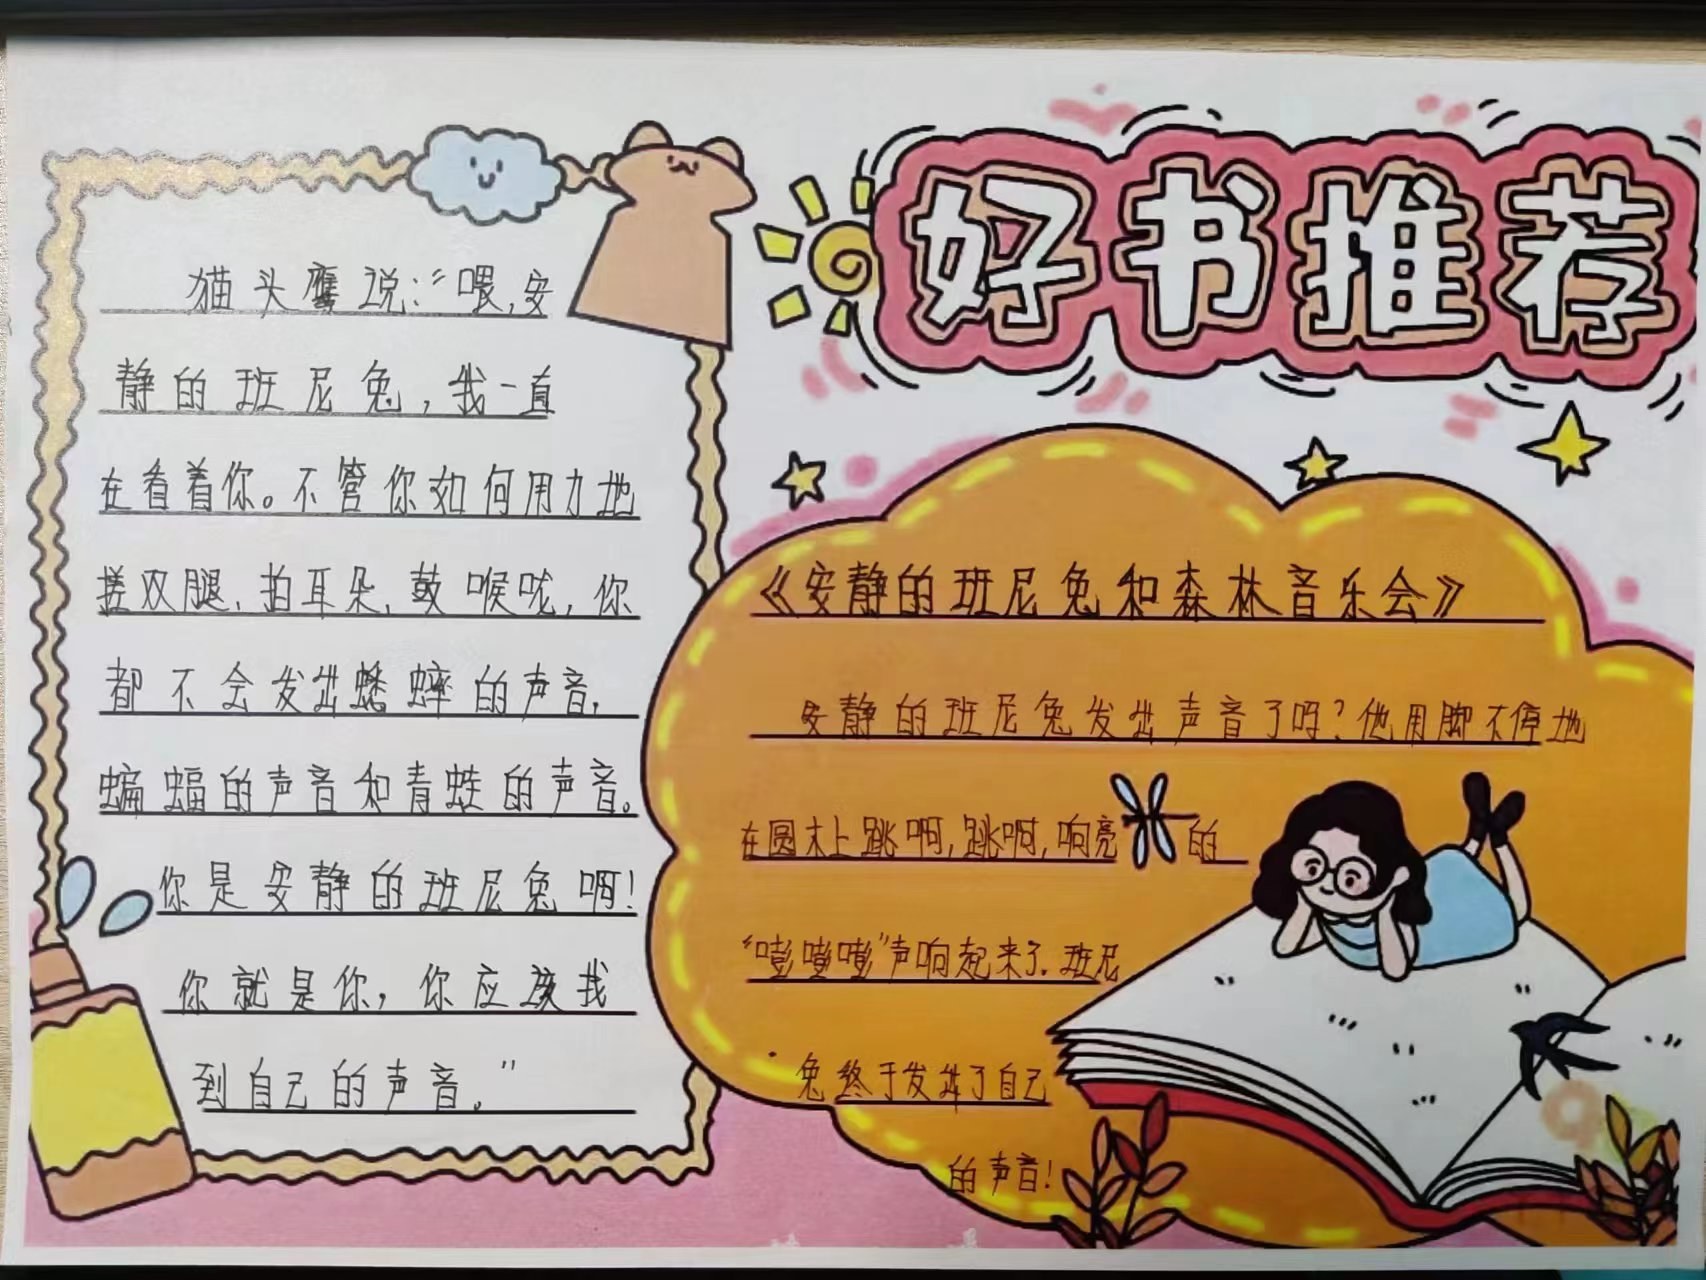 好书推荐
猫头鹰说:“喂,安
静的班尼兔,我一直
在看着你。不管你如何用力地
搓双腿,拍耳朵,鼓喉咙,你
都不会发出蟋蟀的声音,
蝙蝠的声音和青蛙的声音。
你是安静的班尼兔啊!
你就是你,你应该找
到自己的声音。”
《安静的班尼兔和森林音乐会》
安静的班尼兔发出声音了吗?他用脚不停地
在圆木上跳啊,跳啊,响亮的
“嘭嘭嘭”声响起来了,班尼
兔终于发出了自己
的声音!